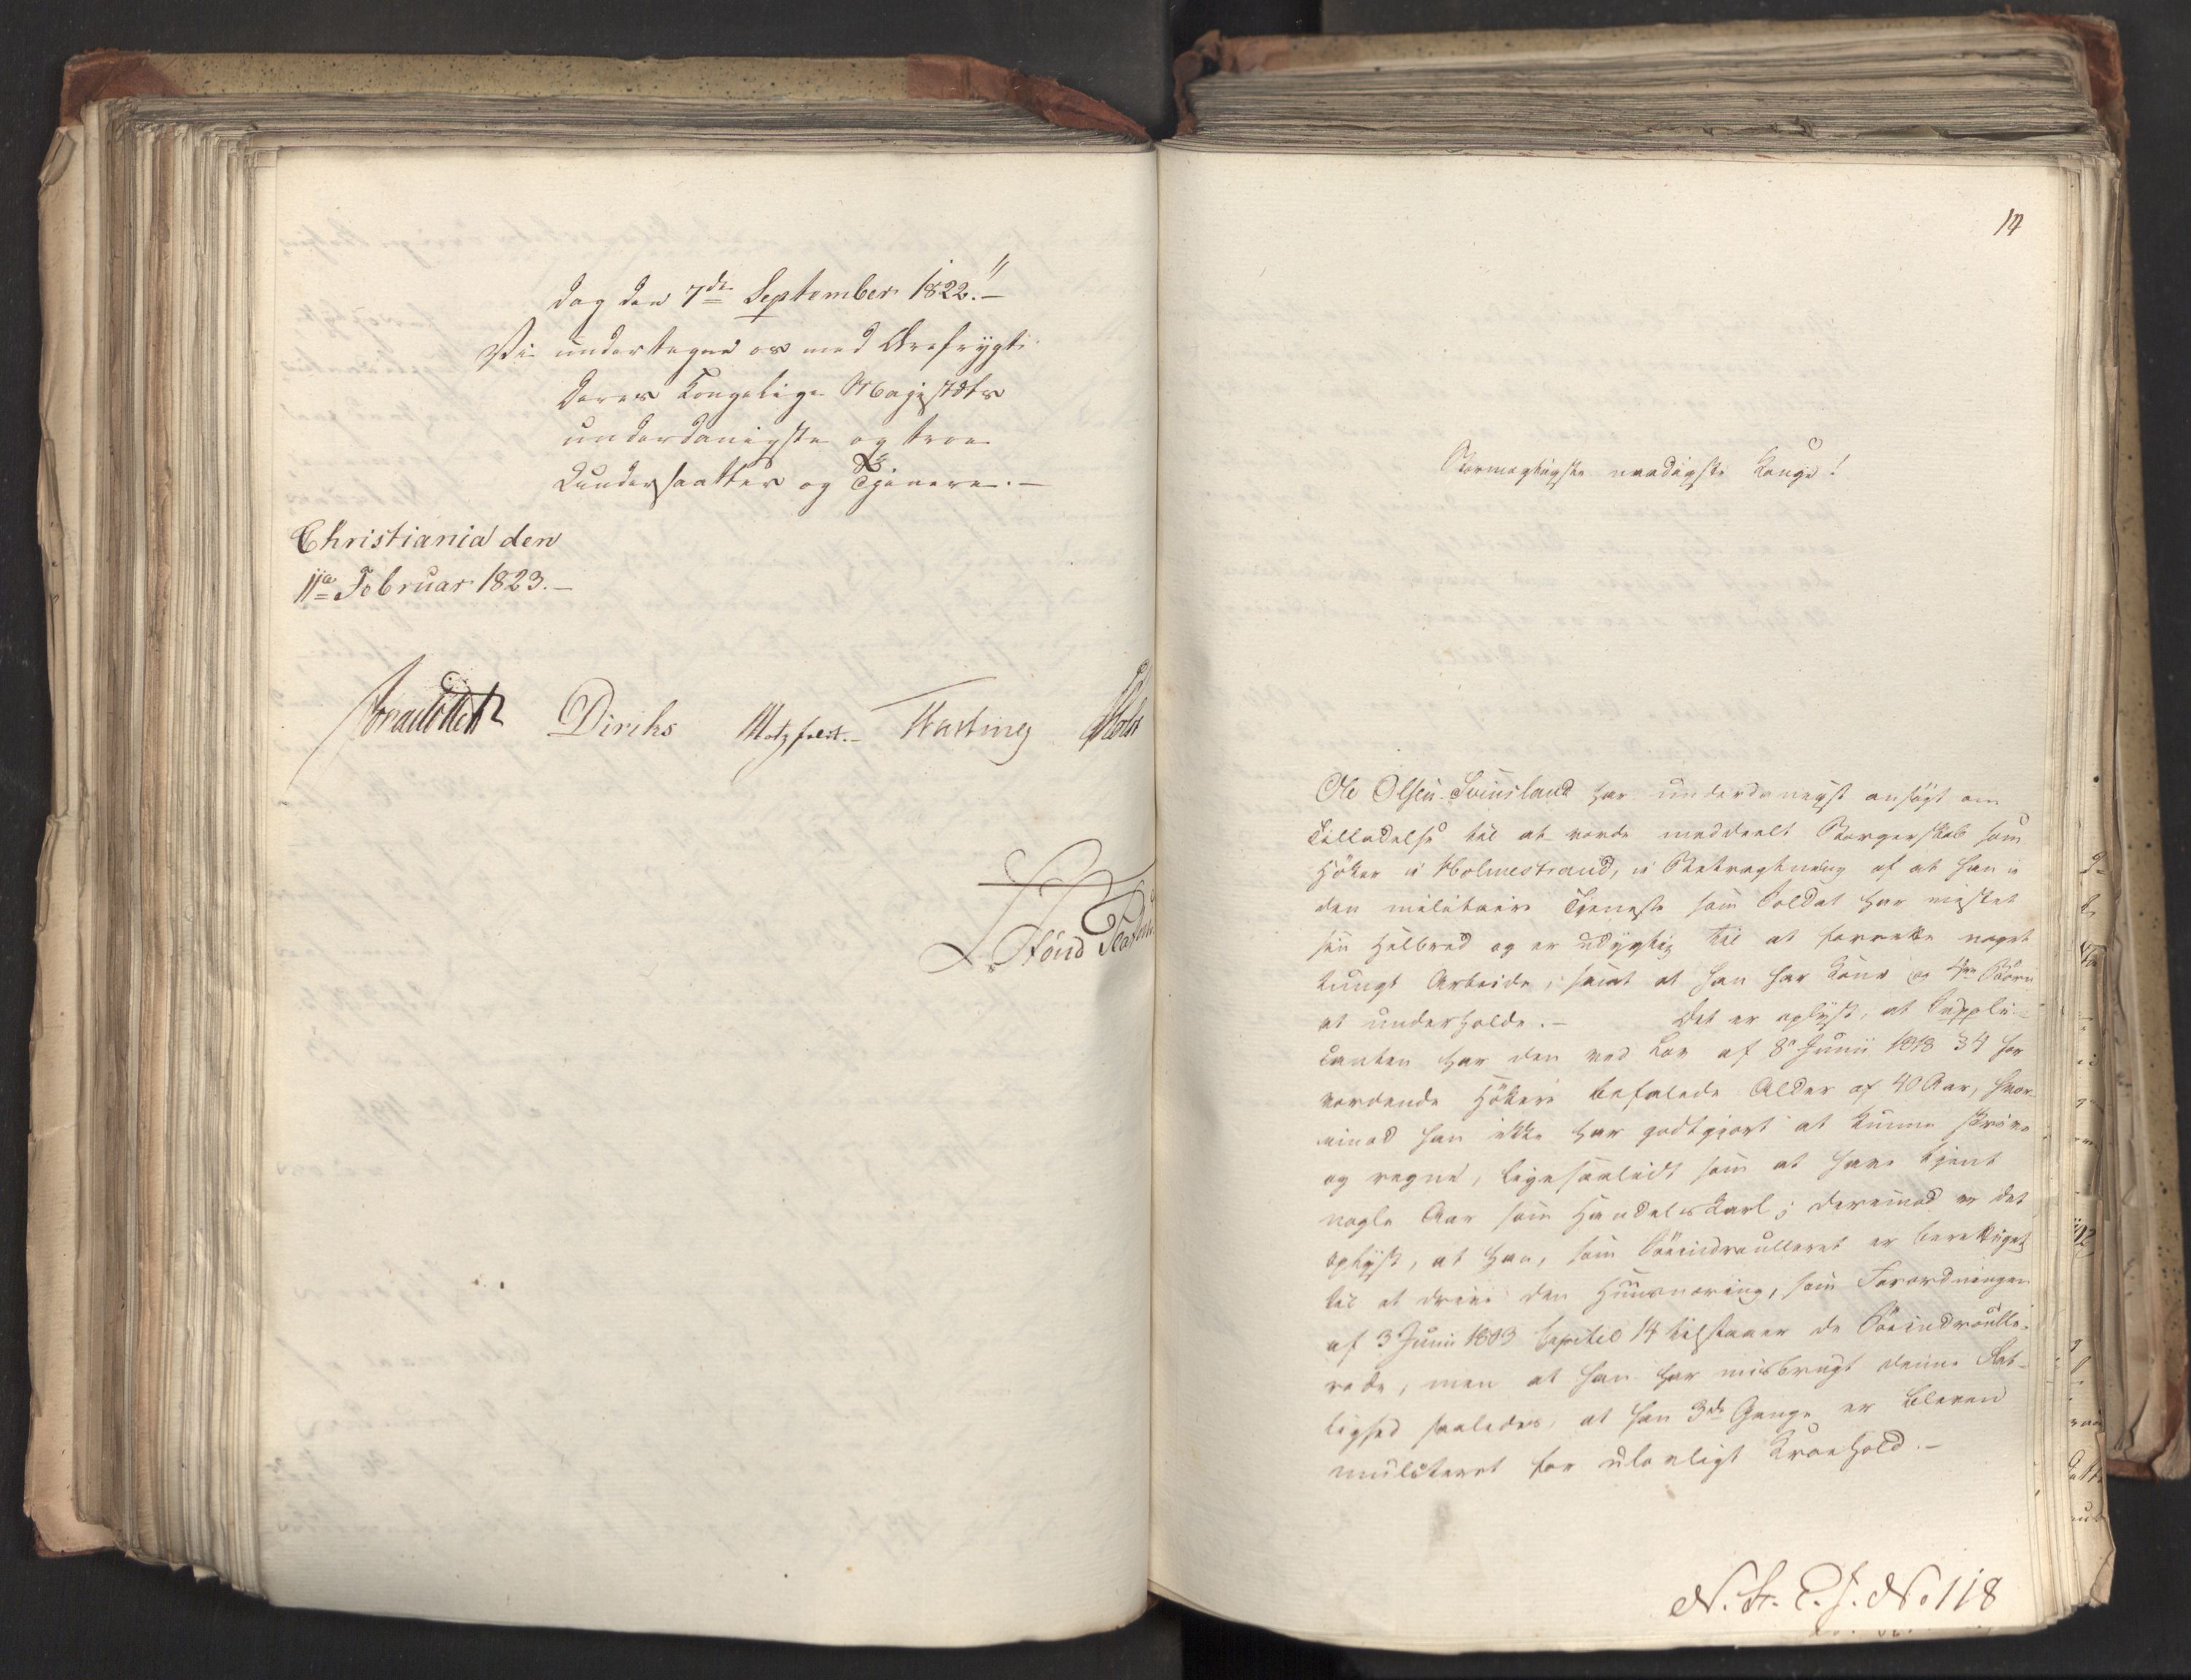 dag den 7de September 1822."
Vi undertegne os med Ærefrygt
Deres Kongelige Majestæts
underdanigste og troe
Undersaatter og Tjenere.
Christiania den
11te Februar 1823.
Diriks Motzfeldt. Fasting Holst
14
Stormægtigste naadigste Konge!
Ole Olsen Svinsland har underdanigst ansøgt om
Tilladelse til at vorde meddeelt Borgerskab som
Høker i Holmestrand, i Betragtning af at han i
den militaire Tjeneste som Soldat har mistet
sin Helbred og er udygtig til at forrette noget
tungt Arbeide, samt at han har Kone og 4re Børn
at underholde. – Det er oplyst, at Suppli-
canten har den ved Lov af 8de Junii 1818 § 4 for
vordende Høkere befalede Alder af 40 Aar, hvor-
imod han ikke har godtgjort at kunne skrive
og regne, ligesaalidt som at have tjent
nogle Aar som Handelskarl; derimod er det
oplyst, at han, som Søeindroulleret er berettiget
til at drive den Huusnæring, som Forordningen
af 3 Junii 1803 Capitel 14 tilstaaer de Søeindroulle-
rede, men at han har misbrugt denne Ret-
tighed saaledes, at han 3de Gange er bleven
mulcteret for ulovligt Kroehold. –
N. St. E. J. No 118